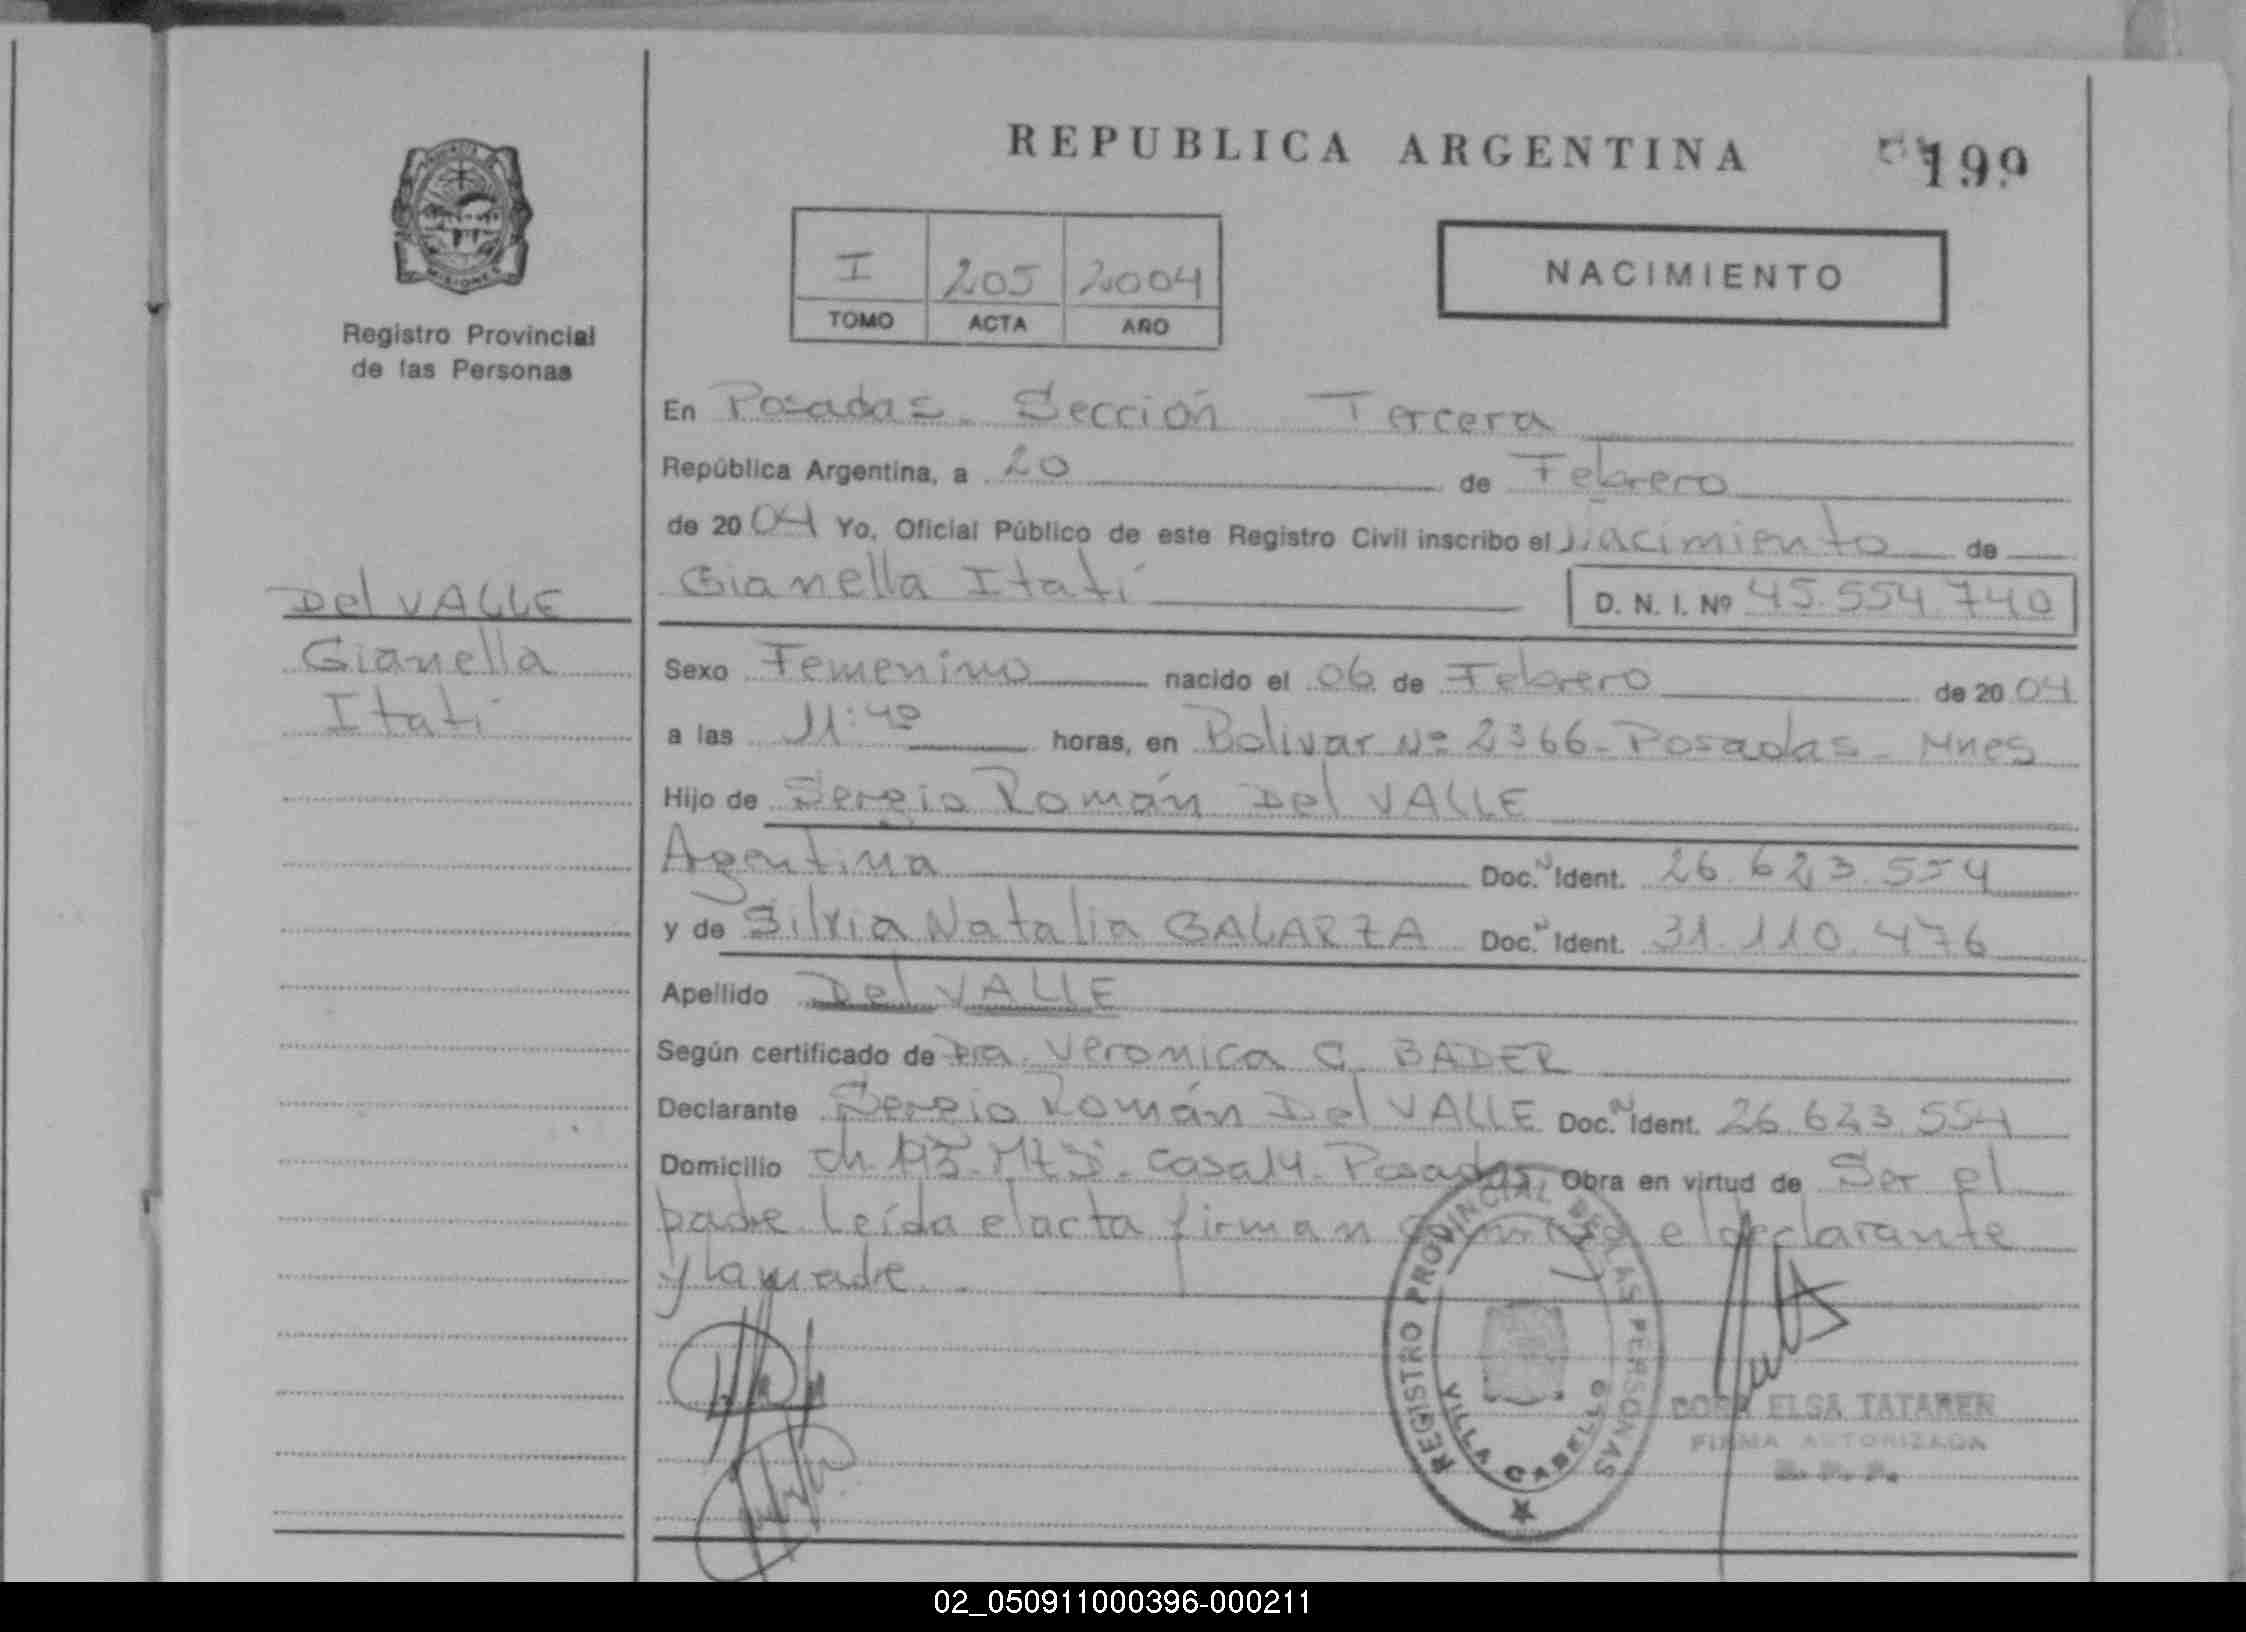 REPUBLICA ARGENTINA
199
PROVINCIA DE MISIONES
Registro Provincial
de las Personas
I 205 2004
TOMO ACTA AÑO
NACIMIENTO
En Posadas - Sección Tercera
República Argentina, a 20 de Febrero
de 2004 Yo, Oficial Público de este Registro Civil inscribo el Nacimiento de
Gianella Itatí D. N. I. Nº 45.554.740
Del VALLE
Gianella
Itatí
Sexo Femenino nacido el 06 de Febrero de 2004
a las 11:40 horas, en Bolivar Nº 2366 - Posadas - Mnes
Hijo de Sergio Román Del VALLE
Agentina Doc. N Ident. 26.623.554
y de Silvia Natalia GALARZA Doc. N Ident. 31.110.476
Apellido Del VALLE
Según certificado de Dra. Veronica C. BADER
Declarante Sergio Román Del VALLE Doc. N Ident. 26.623.554
Domicilio Ch. casa 14 - Posadas Obra en virtud de Ser el
padre Leída el acta firman el declarante
y la madre
REGISTRO PROVINCIAL DE LAS PERSONAS
VILLA CABELLO
ELSA TATAREN
FIRMA AUTORIZADA
R. P. P.
02_050911000396-000211